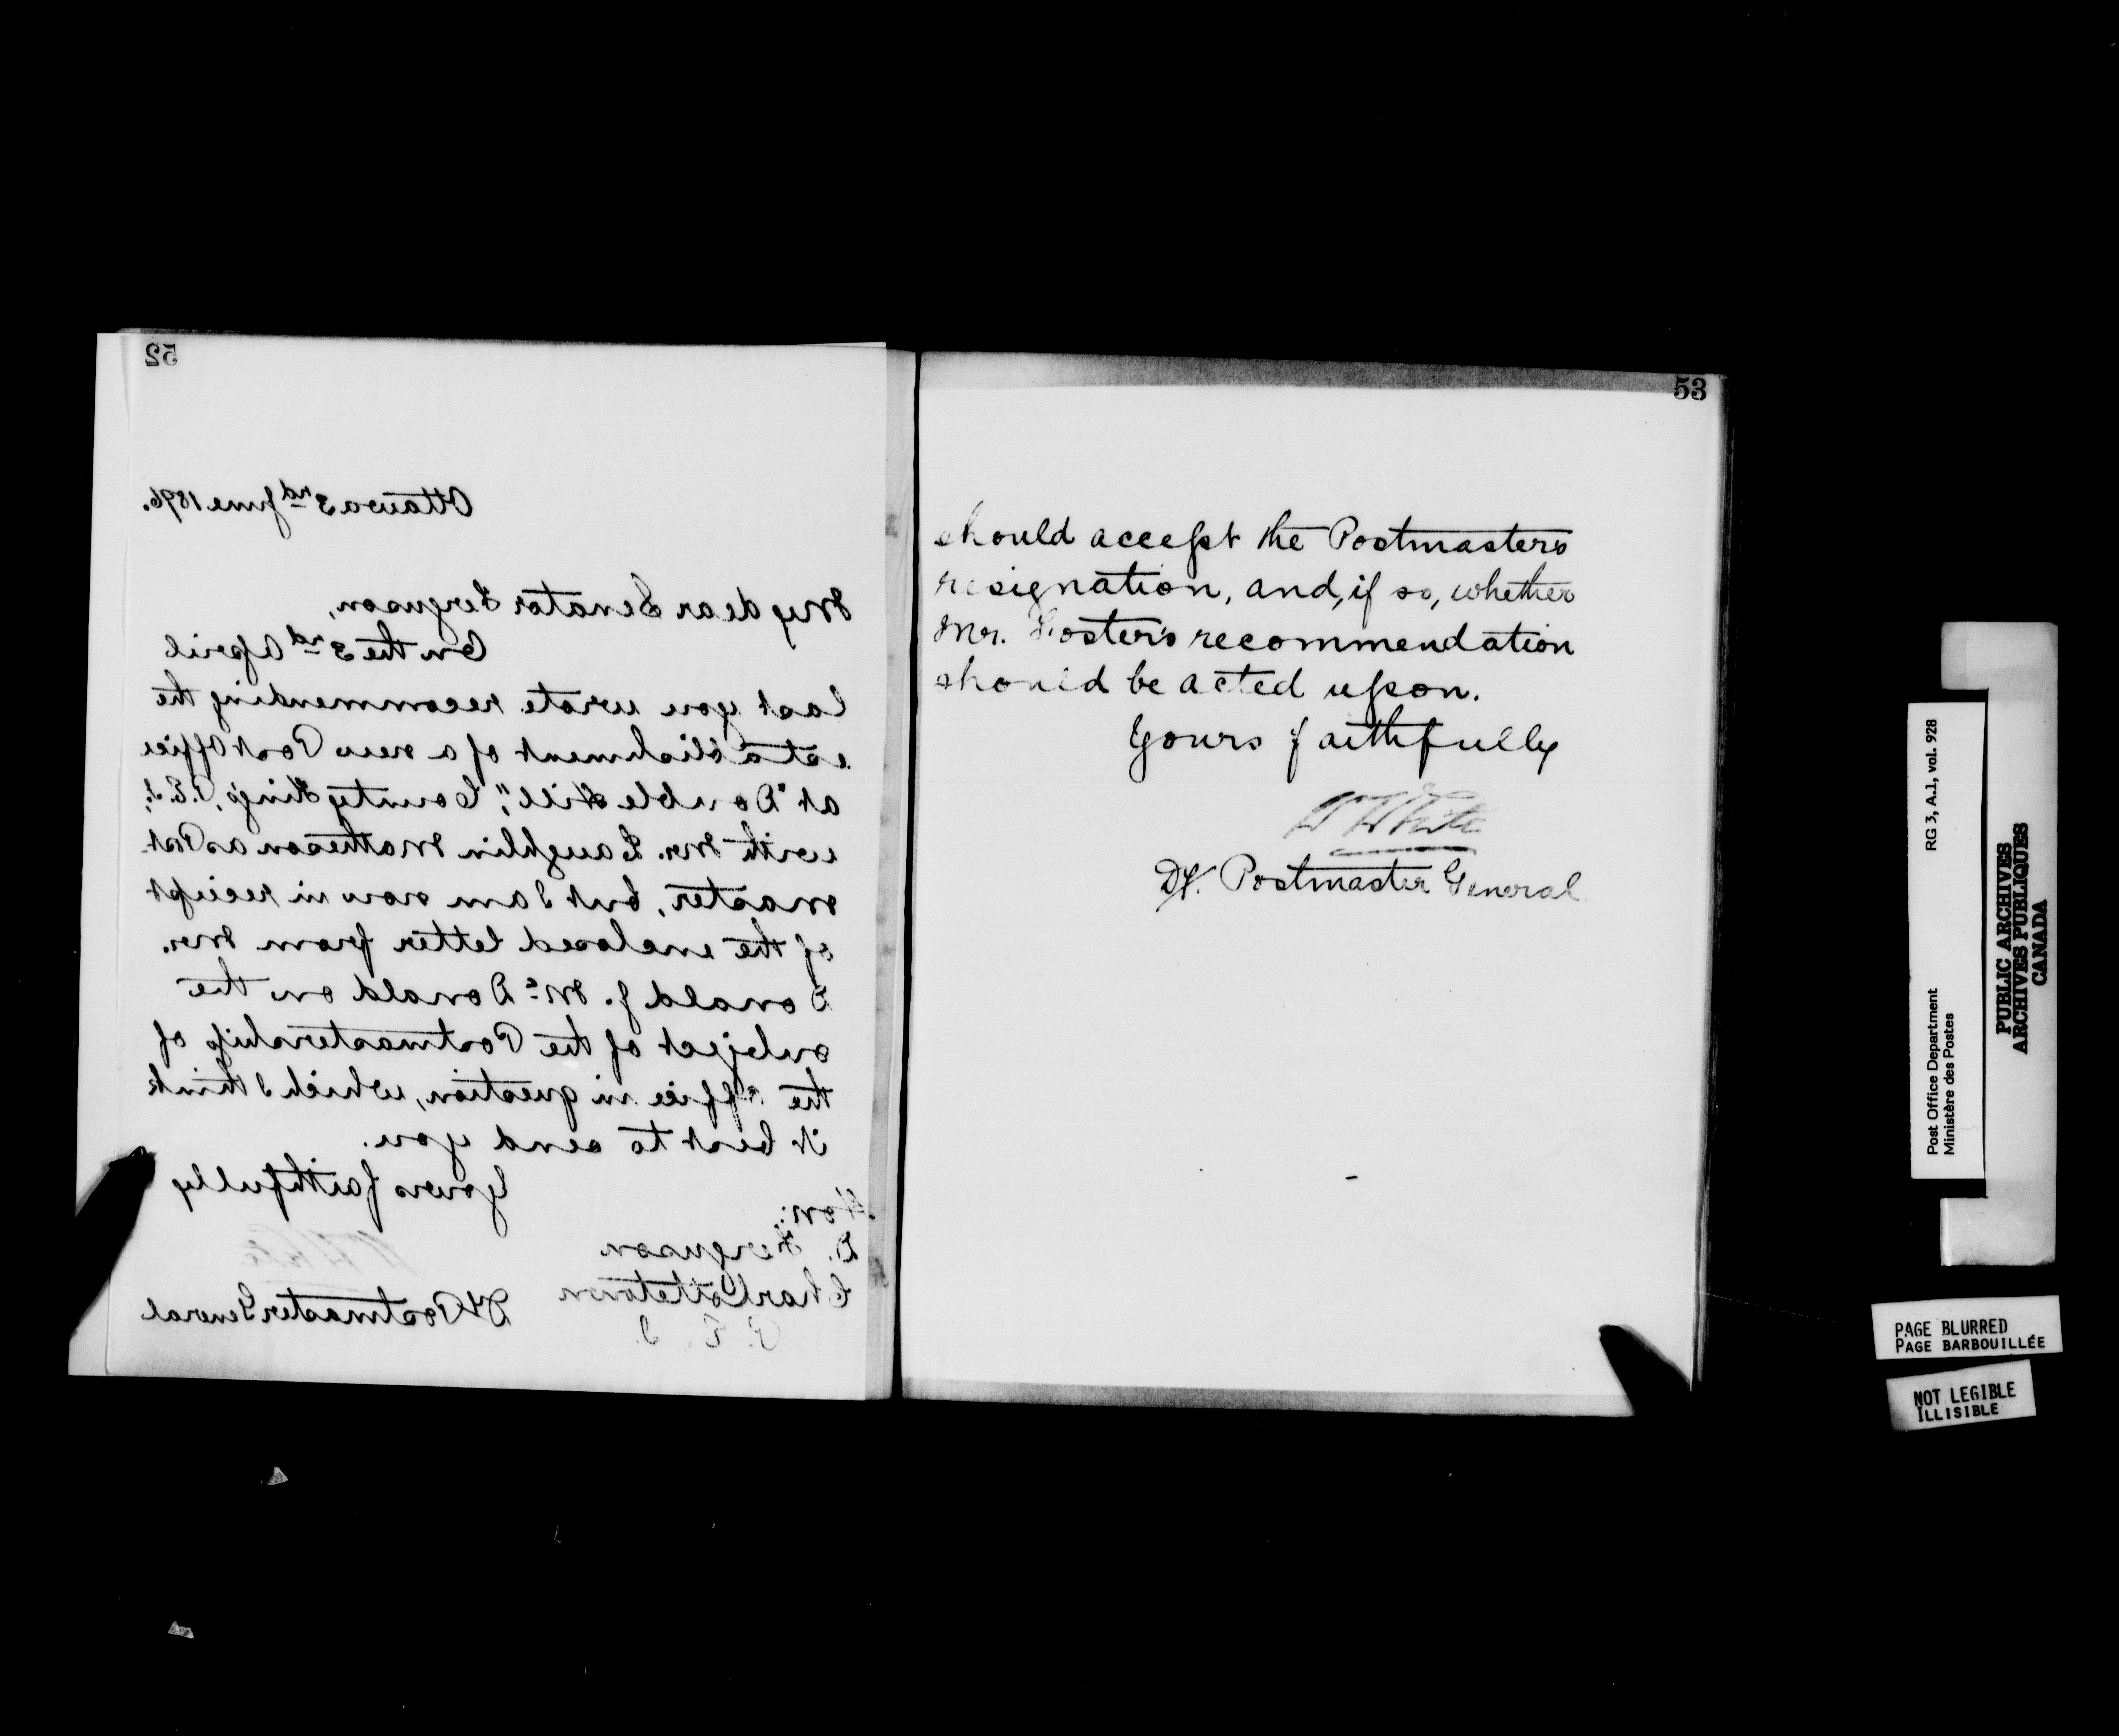 52
Ottawa 3rd June 1896.
My dear Senator Ferguson,
On the 3rd April
last you wrote recommending the
establishment of a new Post Office
at "Double Hill", County Kings, P.E.I.,
with Mr. Laughlin Matheson as Post-
master, but I am now in receipt
of the enclosed letter from Mr.
Donald J. McDonald on the
subject of the Postmastership of
the office in question, which I think
it best to send you.
Yours faithfully
W H White
Dy Postmaster General
Hon:
D. Ferguson
Charlottetown
P. E. I.
53
should accept the Postmaster's
resignation, and, if so, whether
Mr. Foster's recommendation
should be acted upon.
Yours faithfully
W H White
Dy. Postmaster General
Post Office Department
Ministère des Postes
RG 3, A.1, vol. 928
PUBLIC ARCHIVES
ARCHIVES PUBLIQUES
CANADA
PAGE BLURRED
PAGE BARBOUILLÉE
NOT LEGIBLE
ILLISIBLE